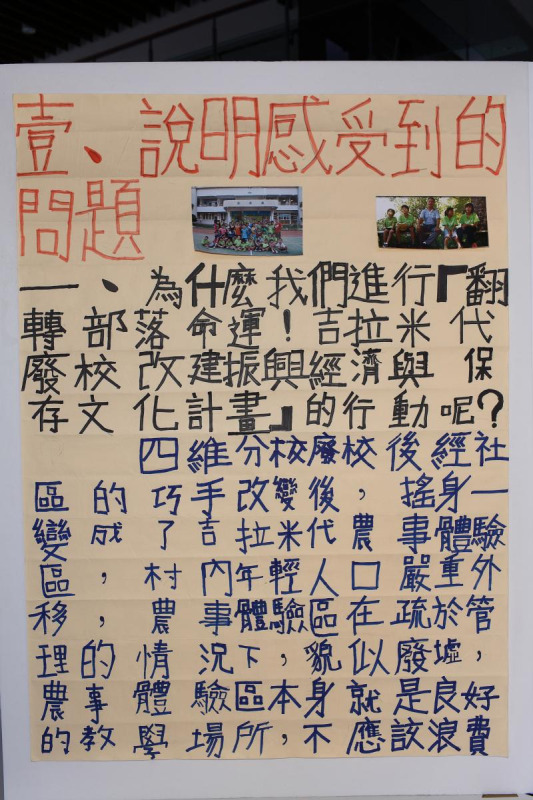 壹、說明感受到的
問題
一、為什麼我們進行『翻
轉部落命運！吉拉米代
廢校改建振興經濟與保
存文化計畫』的行動呢？
四維分校廢校後經社
區的巧手改變後，搖身一
變成了吉拉米代農事體驗
區，村內年輕人口嚴重外
移，農事體驗區在疏於管
理的情況下，貌似廢墟，
農事體驗區本身就是良好
的教學場所，不應該浪費